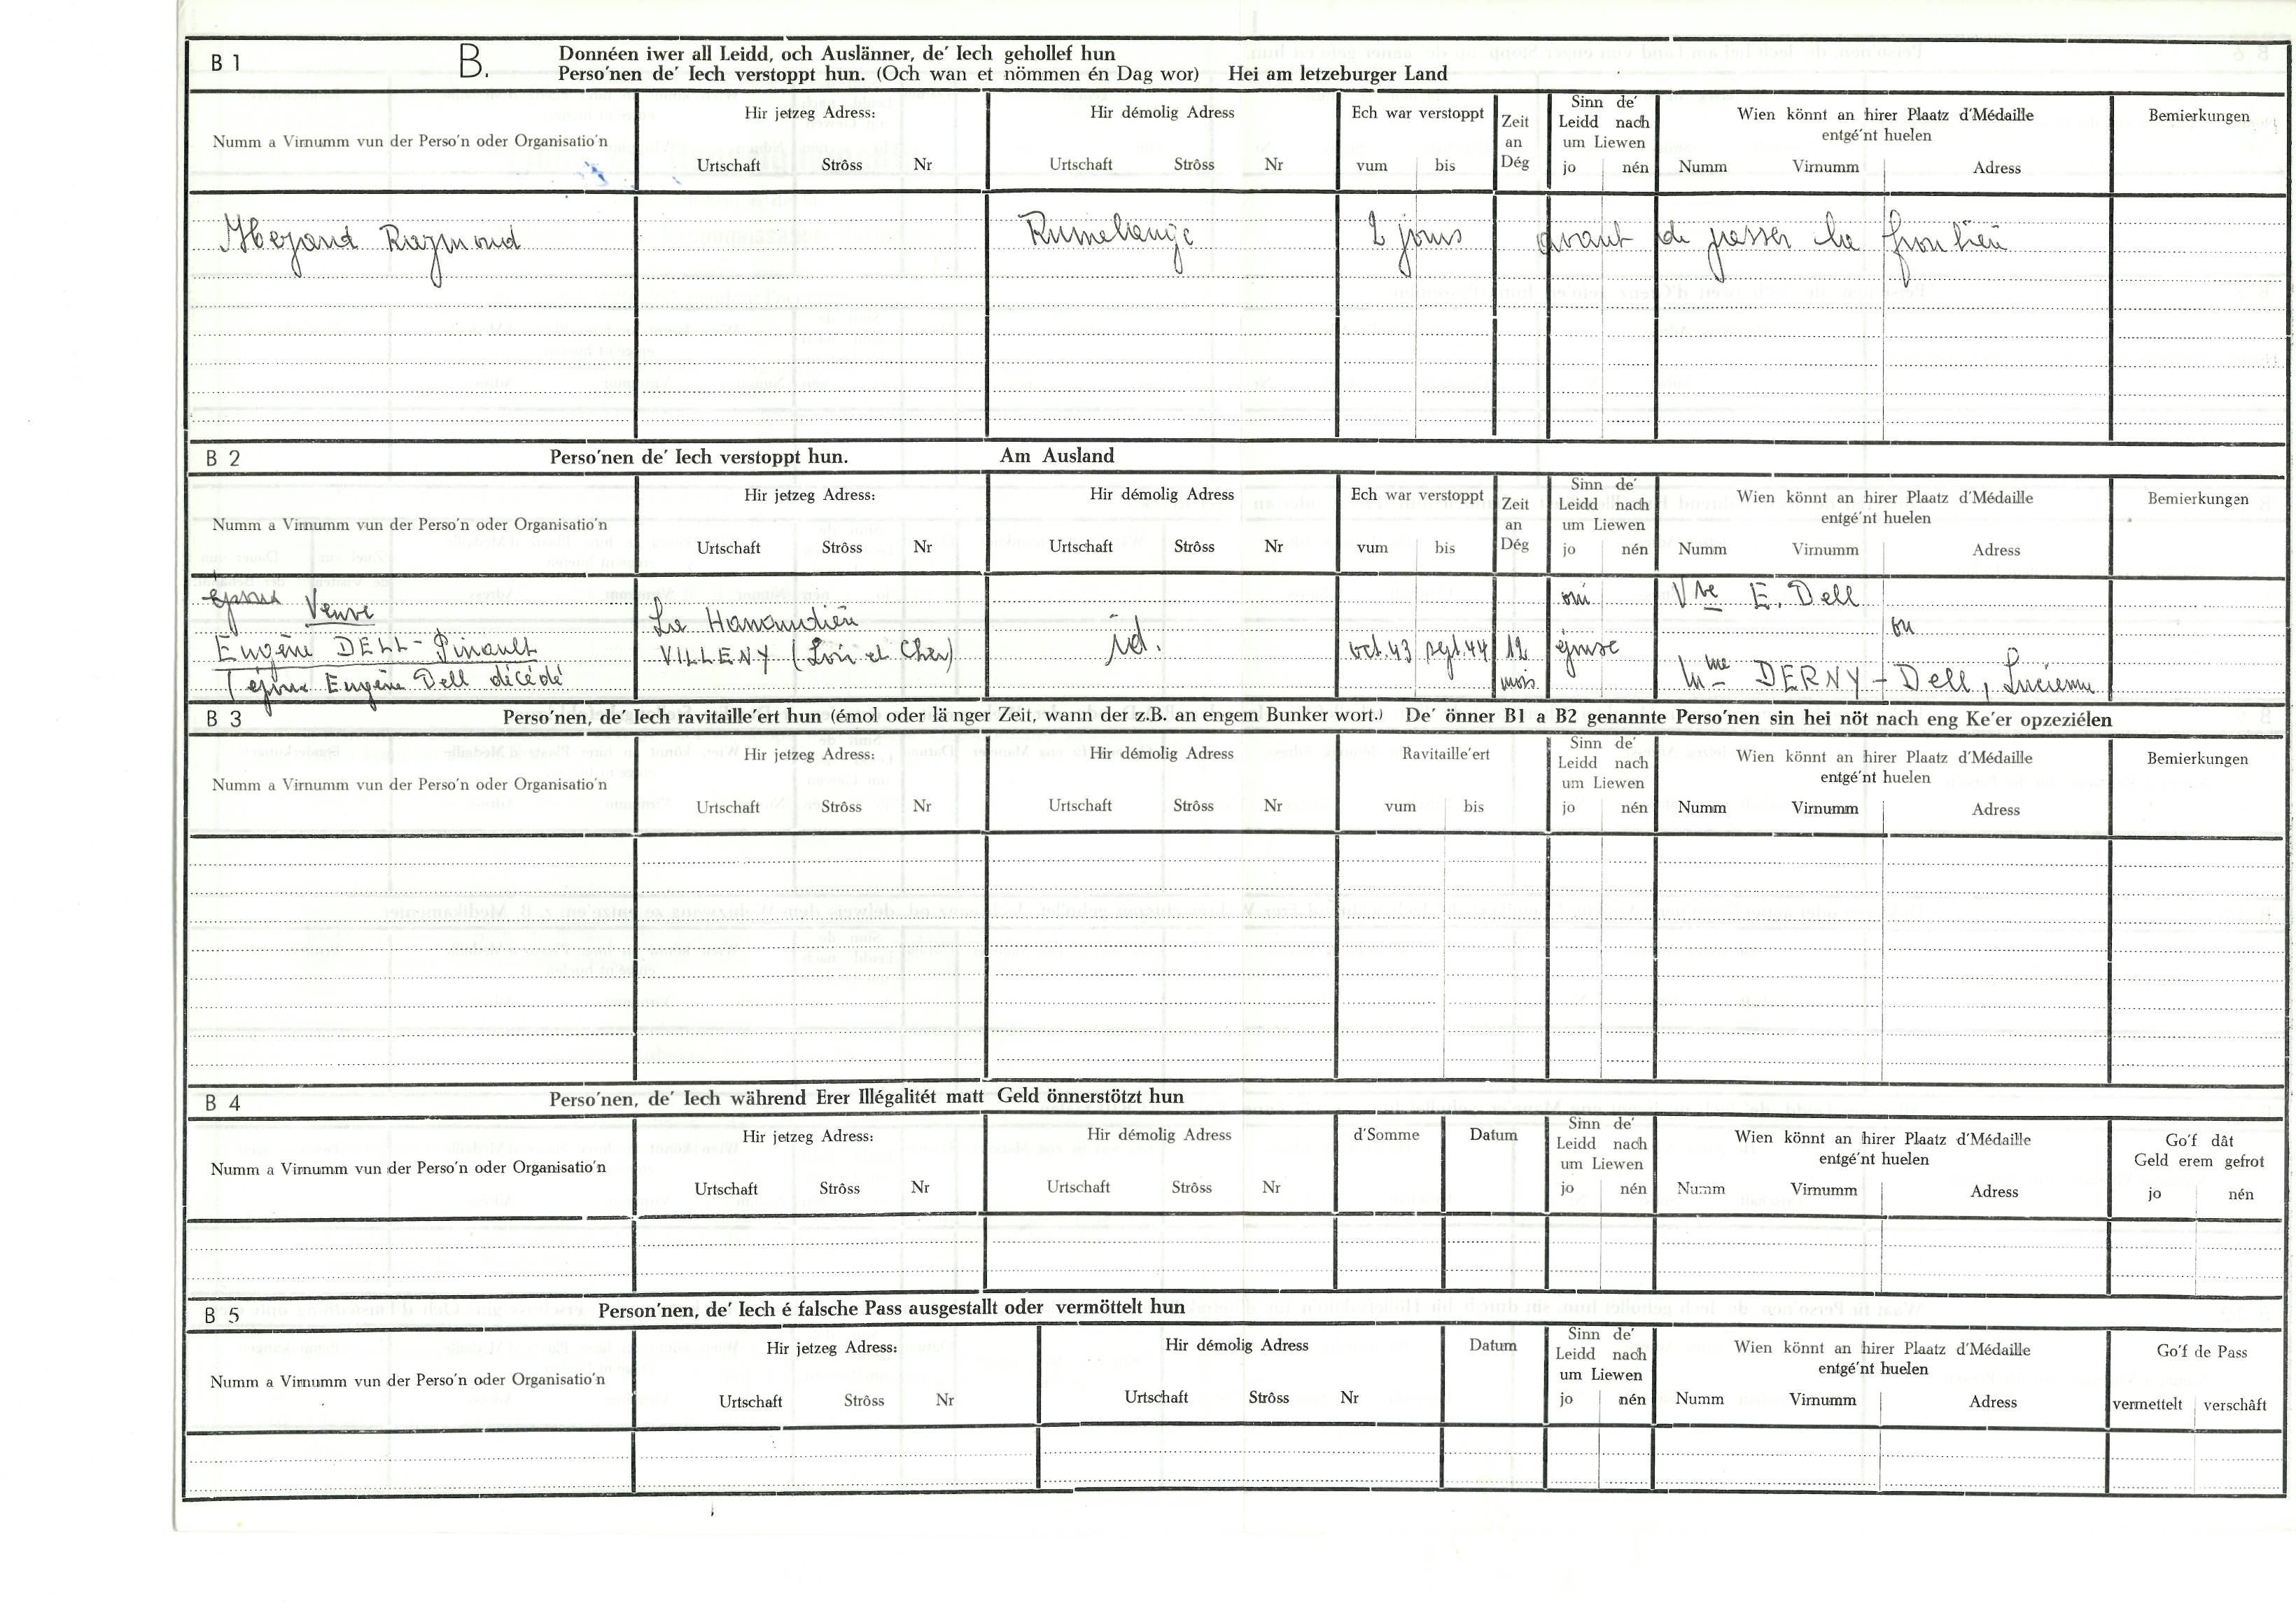 B 1 B. Donnéen iwer all Leidd, och Auslänner, de' Iech gehollef hun
Perso'nen de' Iech verstoppt hun. (Och wan et nömmen én Dag wor) Hei am letzeburger Land
Numm a Virnumm vun der Perso'n oder Organisatio'n
Hir jetzeg Adress:
Urtschaft Strôss Nr
Hir démolig Adress
Urtschaft Strôss Nr
Ech war verstoppt
vum bis
Zeit
an
Dég
Sinn de'
Leidd nach
um Liewen
jo nén
Wien könnt an hirer Plaatz d'Médaille
entgé'nt huelen
Numm Virnumm Adress
Bemierkungen
Raymond Rumelange 2 jours avant de passer la frontière
B 2 Perso'nen de' Iech verstoppt hun. Am Ausland
Numm a Virnumm vun der Perso'n oder Organisatio'n
Hir jetzeg Adress:
Urtschaft Strôss Nr
Hir démolig Adress
Urtschaft Strôss Nr
Ech war verstoppt
vum bis
Zeit
an
Dég
Sinn de'
Leidd nach
um Liewen
jo nén
Wien könnt an hirer Plaatz d'Médaille
entgé'nt huelen
Numm Virnumm Adress
Bemierkungen
époux Veuve
Eugène DELL-Pinault
(époux Eugène Dell décédé
VILLENY (Loir et Cher)
id.
oct.43 sept.44 12
mois
oui
épouse
Vve E. Dell
ou
Mme DERNY - Dell, Lucienne
B 3 Perso'nen, de' Iech ravitaille'ert hun (émol oder länger Zeit, wann der z.B. an engem Bunker wort.) De' önner B1 a B2 genannte Perso'nen sin hei nöt nach eng Ke'er opzeziélen
Numm a Virnumm vun der Perso'n oder Organisatio'n
Hir jetzeg Adress:
Urtschaft Strôss Nr
Hir démolig Adress
Urtschaft Strôss Nr
Ravitaille'ert
vum bis
Sinn de'
Leidd nach
um Liewen
jo nén
Wien könnt an hirer Plaatz d'Médaille
entgé'nt huelen
Numm Virnumm Adress
Bemierkungen
B 4 Perso'nen, de' Iech während Erer Illégalitét matt Geld önnerstötzt hun
Numm a Virnumm vun der Perso'n oder Organisatio'n
Hir jetzeg Adress:
Urtschaft Strôss Nr
Hir démolig Adress
Urtschaft Strôss Nr
d'Somme
Datum
Sinn de'
Leidd nach
um Liewen
jo nén
Wien könnt an hirer Plaatz d'Médaille
entgé'nt huelen
Numm Virnumm Adress
Go'f dât
Geld erem gefrot
jo nén
B 5 Person'nen, de' Iech é falsche Pass ausgestallt oder vermöttelt hun
Numm a Virnumm vun der Perso'n oder Organisatio'n
Hir jetzeg Adress:
Urtschaft Strôss Nr
Hir démolig Adress
Urtschaft Strôss Nr
Datum
Sinn de'
Leidd nach
um Liewen
jo nén
Wien könnt an hirer Plaatz d'Médaille
entgé'nt huelen
Numm Virnumm Adress
Go'f de Pass
vermettelt verschâft